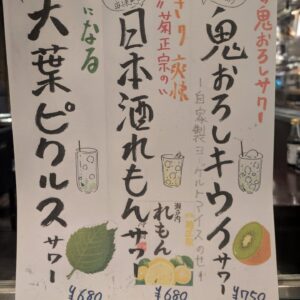 鬼おろしサワー
鬼おろしキウイサワー
～自家製ヨーグルトアイスのせ～
¥750
きり爽快
菊正宗の
日本酒れもんサワー
瀬戸内
れもん
¥680
になる
大葉ピクルスサワー
¥680